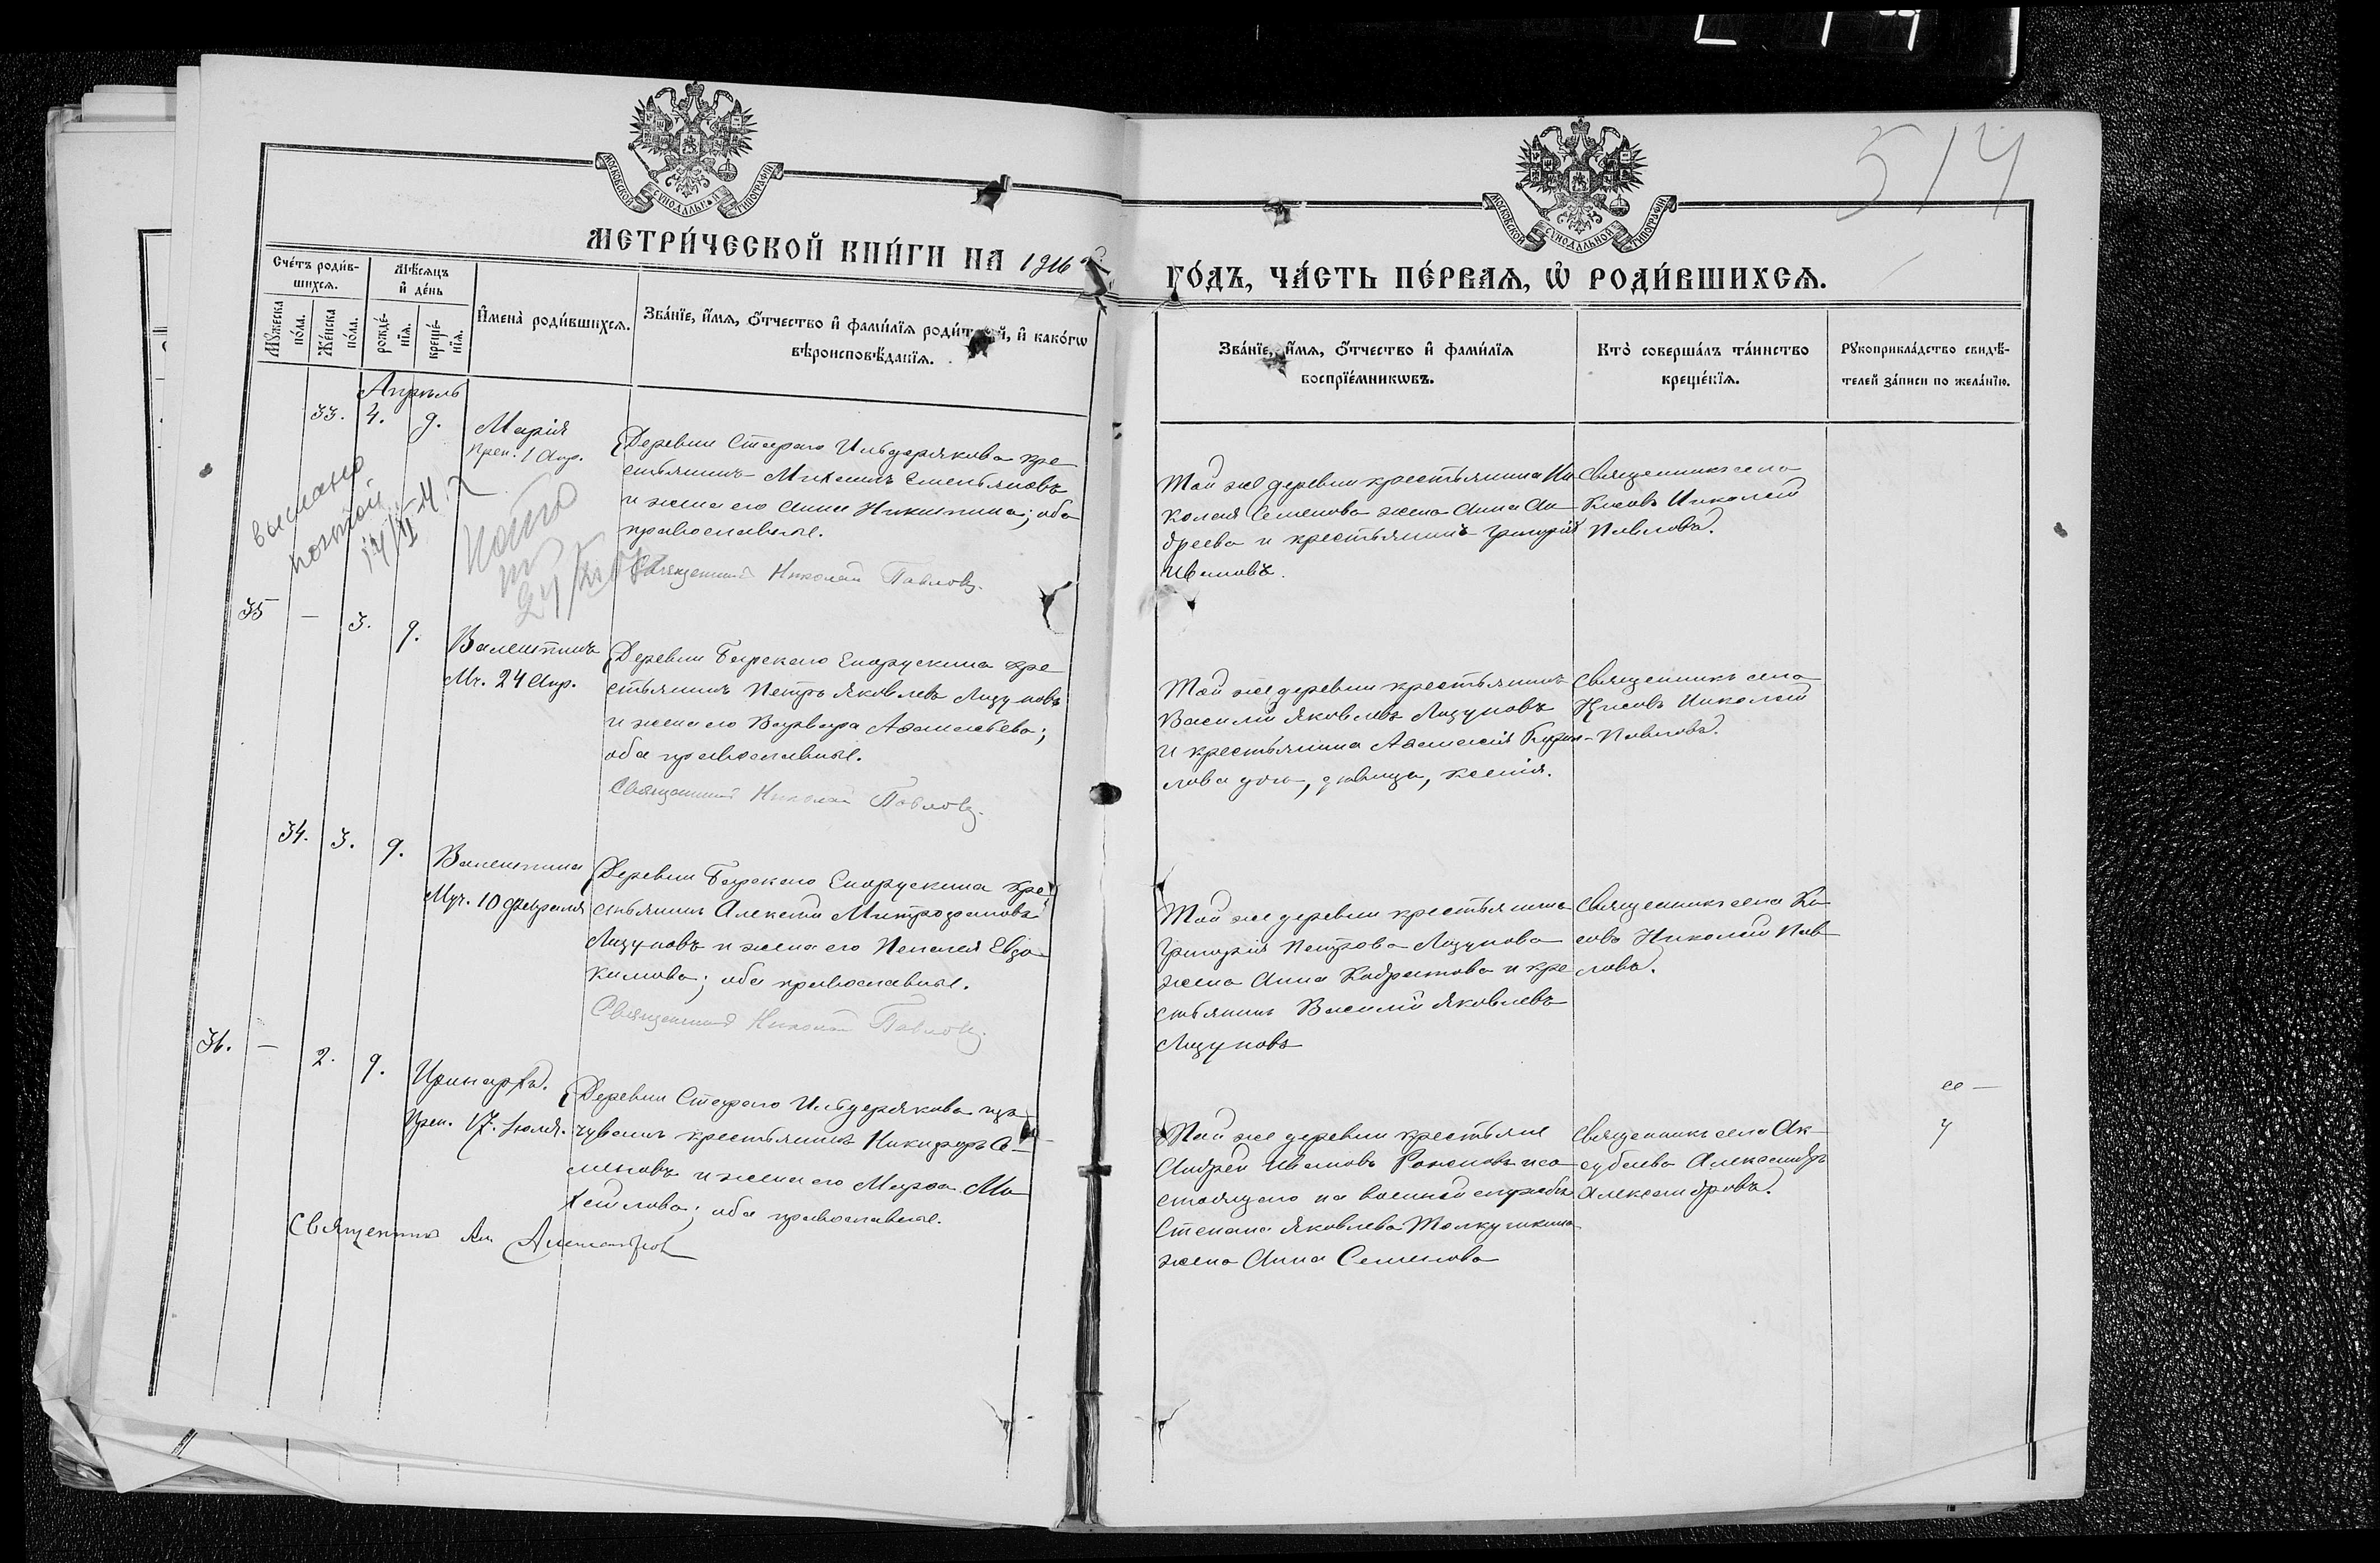 514
МОСКОВСКОЙ СѴНОДАЛЬНОЙ ТИПОГРАФІИ
МОСКОВСКОЙ СѴНОДАЛЬНОЙ ТИПОГРАФІИ
МЕТРИ́ЧЕСКОЙ КНИ́ГИ НА 1916 г.
ГО́ДЪ, ЧА́СТЬ ПЕ́РВАѦ, Ѡ҆ РОДИ́ВШИХСѦ.
Сче́тъ роди́в-
шихсѧ.
Мꙋ́жеска по́ла.
Же́нска по́ла.
Мѣ́сѧцъ
и҆ де́нь
рожде́-
нїѧ.
креще́-
нїѧ.
И҆мена̀ роди́вшихсѧ.
Зва́нїе, и҆́мѧ, ѻ҆́тчество и҆ фами́лїѧ роди́телей, и҆ како́гѡ
вѣроисповѣ́данїѧ.
Зва́нїе, и҆́мѧ, ѻ҆́тчество и҆ фами́лїѧ
воспрїе́мникѡвъ.
Кто̀ соверша́лъ та́инство
креще́нїѧ.
Рꙋкоприкла́дство свидѣ́-
телей за́писи по жела́нїю.
Апрѣль
33. 4. 9.
Марія
Преп. 1 Апр.
Деревни Стараго Ильдерякова кре
стьянинъ Михаилъ Емельяновъ
и жена его Анна Никитина; оба
православные.
Священникъ Николай Павловъ.
Той же деревни крестьянина Ни
колая Семенова жена Анна Ан
дреева и крестьянинъ Григорій
Ивановъ.
Священникъ села
Кисовъ Николай
Павловъ.
выслано
почтой
35 — 3. 9.
Валентинъ
Мч. 24 Апр.
Деревни Бирскаго Енорускина кре
стьянинъ Петръ Яковлевъ Лизуновъ
и жена его Варвара Аѳанасьева;
оба православные.
Священникъ Николай Павловъ.
Той же деревни крестьянинъ
Василій Яковлевъ Лизуновъ
и крестьянина Аѳанасія Кирил-
лова дочь, дѣвица, Ксенія.
Священникъ села
Кисовъ Николай
Павловъ.
34. 3. 9.
Валентина
Муч. 10 февраля
Деревни Бирскаго Енорускина кре
стьянинъ Алексѣй Митрофановъ
Лизуновъ и жена его Пелагея Евдо
кимова; оба православные.
Священникъ Николай Павловъ.
Той же деревни крестьянина
Григорія Петрова Лизунова
жена Анна Кодратова и кре
стьянинъ Василій Яковлевъ
Лизуновъ
Священникъ села Ки
совъ Николай Пав
ловъ.
36. — 2. 9.
Иринархъ.
Преп. 17. Іюля.
Деревни Стараго Ильдерякова изъ
чувашъ крестьянинъ Никифоръ Се
меновъ и жена его Марѳа Ми
хайлова; оба православные.
Священникъ Ал. Александров
Той же деревни крестьяне
Андрей Ивановъ и со
стоящаго на военной службѣ
Степана Яковлева Толкушкина
жена Анна Семенова
Священникъ села Ак
субаева Александръ
Александровъ.